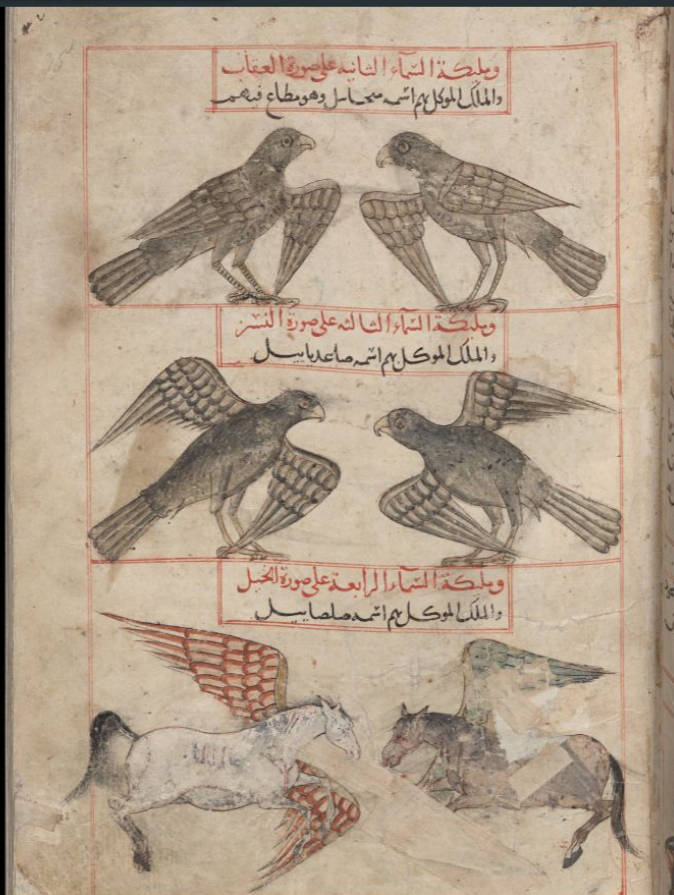 وملىكة السماء الثانيه على صورة العقاب
والملك الموكل بهم اسمه ميخاىىل وهو مطاع فيهم
وملىكة السماء الثالثه على صورة النسر
والملك الموكل بهم اسمه صاعدياىيل
وملىكة السماء الرابعة على صورة الخيل
والملك الموكل بهم اسمه صلصاىيل